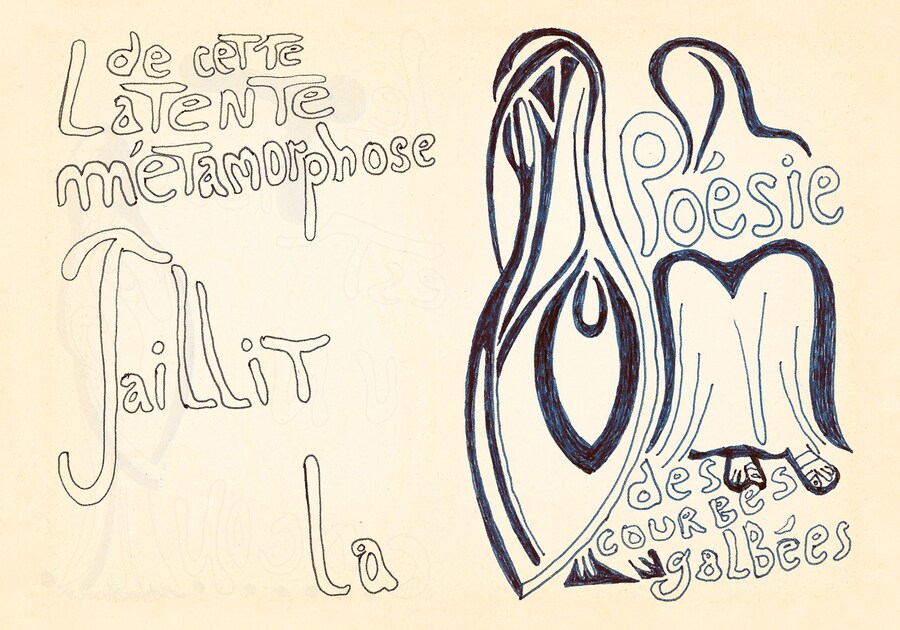 de cette
Latente
métamorphose
Jaillit
la
Poésie
des
courbes
galbées